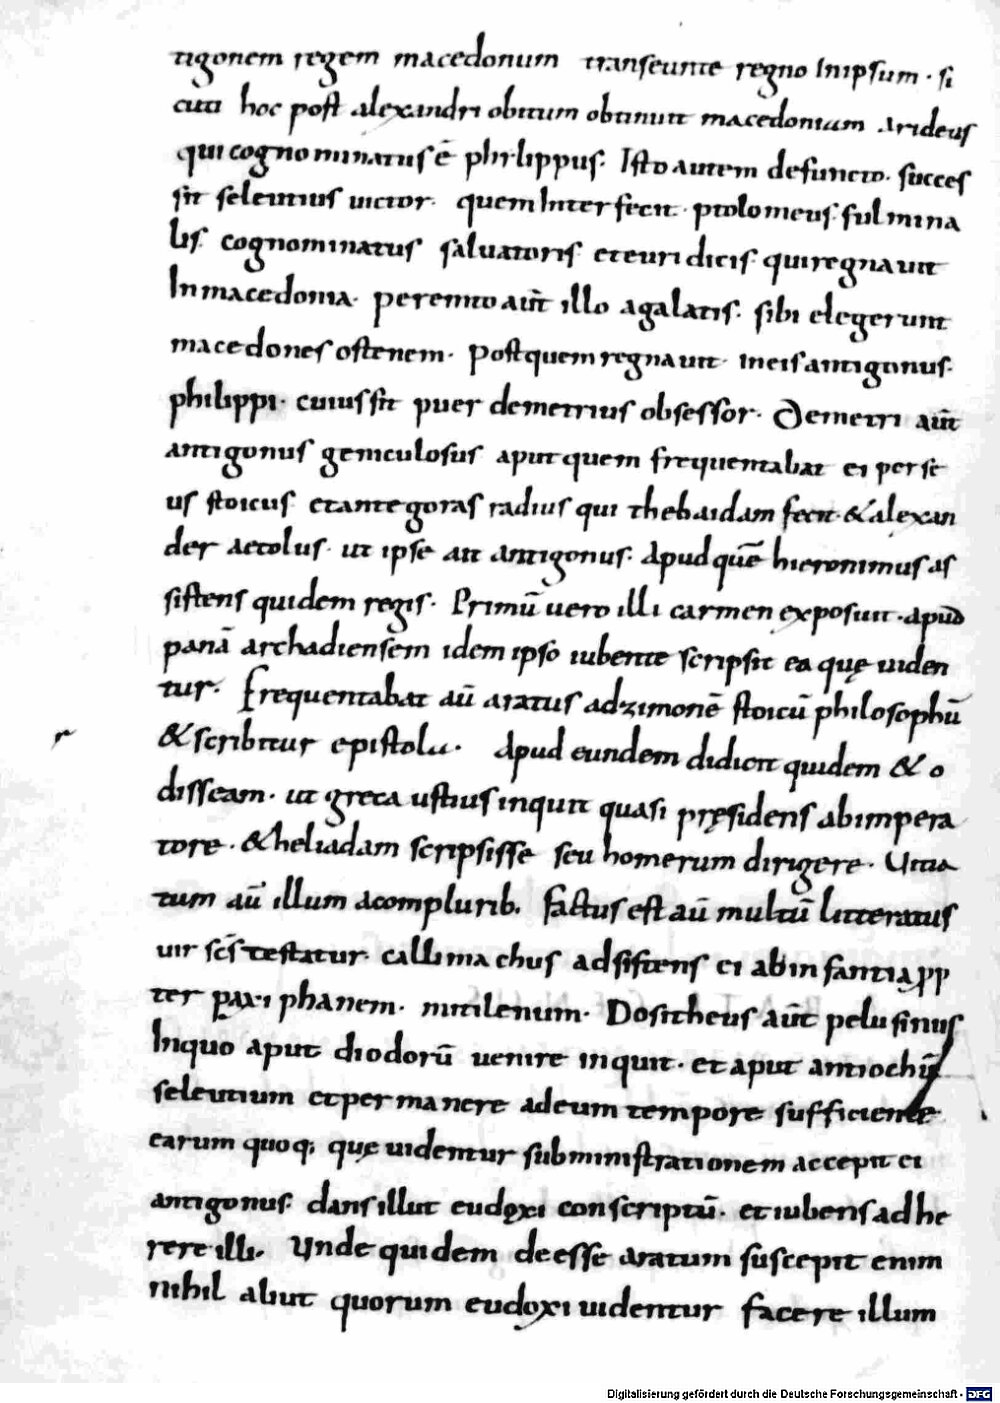 tigonem regem macedonum transeunte regno Inipsum · si
cuti hoc post alexandri obitum obtinuit macedoniam Arideus
qui cognominatus ē philippus· Isto autem defuncto · succes
sit seleutius uictor · quem Interfecit · ptolomeus· fulmina
lis· cognominatus saluatoris et euridicis qui regnauit
In macedonia · perempto aūt illo agalatis· sibi elegerunt
macedones ostenem · post quem regnauit · in eis antigonus·
philippi · cuius fit puer demetrius obsessor · Demetri aūt
antigonus geniculosus aput quem frequentabat ei perse
us stoicus et antegoras radius qui thebaidam fecit· & alexan
der aetolus · ut ipse ait antigonus· Apud quē hieronimus as
sistens quidem regis· Primū uero illi carmen exposuit · apud
panā archadiensem idem ipso iubente scripsit ea quę uiden
tur· frequentabat aū aratus ad zimonē stoicū philosophū
& scribitur epistola · Apud eundem didicit quidem & o
disseam · ut greca ustius inquit quasi pręsidens ab impera
tore · & heliadam scripsisse seu homerum dirigere · Uitia
tum aū illum acomplurib· factus est aū multū litteratus
uir sc̄s testatur· callimachus adsistens ei ab infantia pp
ter paxiphanem · mitilenum · Dositheus aūt pelusinus
Inquo aput diodorū uenire inquit · et aput antiochū
seleutium et permanere ad eum tempore sufficiente
earum quoq; quę uidentur subministrationem accepit ei
antigonus· dans illut eudoxi conscriptū · et iubens adhe
rere illi· Unde quidem deesse aratum suscepit enim
nihil abut quorum eudoxi uidentur facere illum
Digitalisierung gefördert durch die Deutsche Forschungsgemeinschaft - DFG